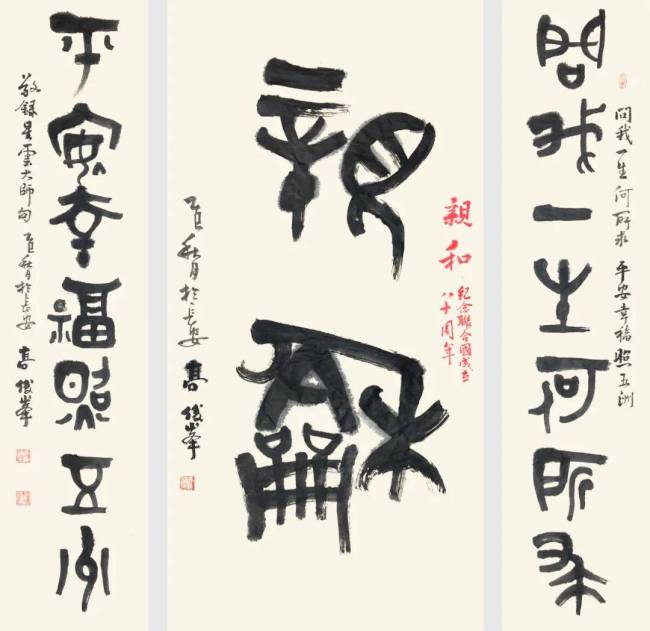 問我一生何所求 平安幸福照五洲
問我一生何所求
親和
紀念聯合國成立
八十周年
親龢
乙巳秋月於長安 高俊峯
平安幸福照五洲
敬錄星雲大師句 乙巳秋月於長安 高俊峯